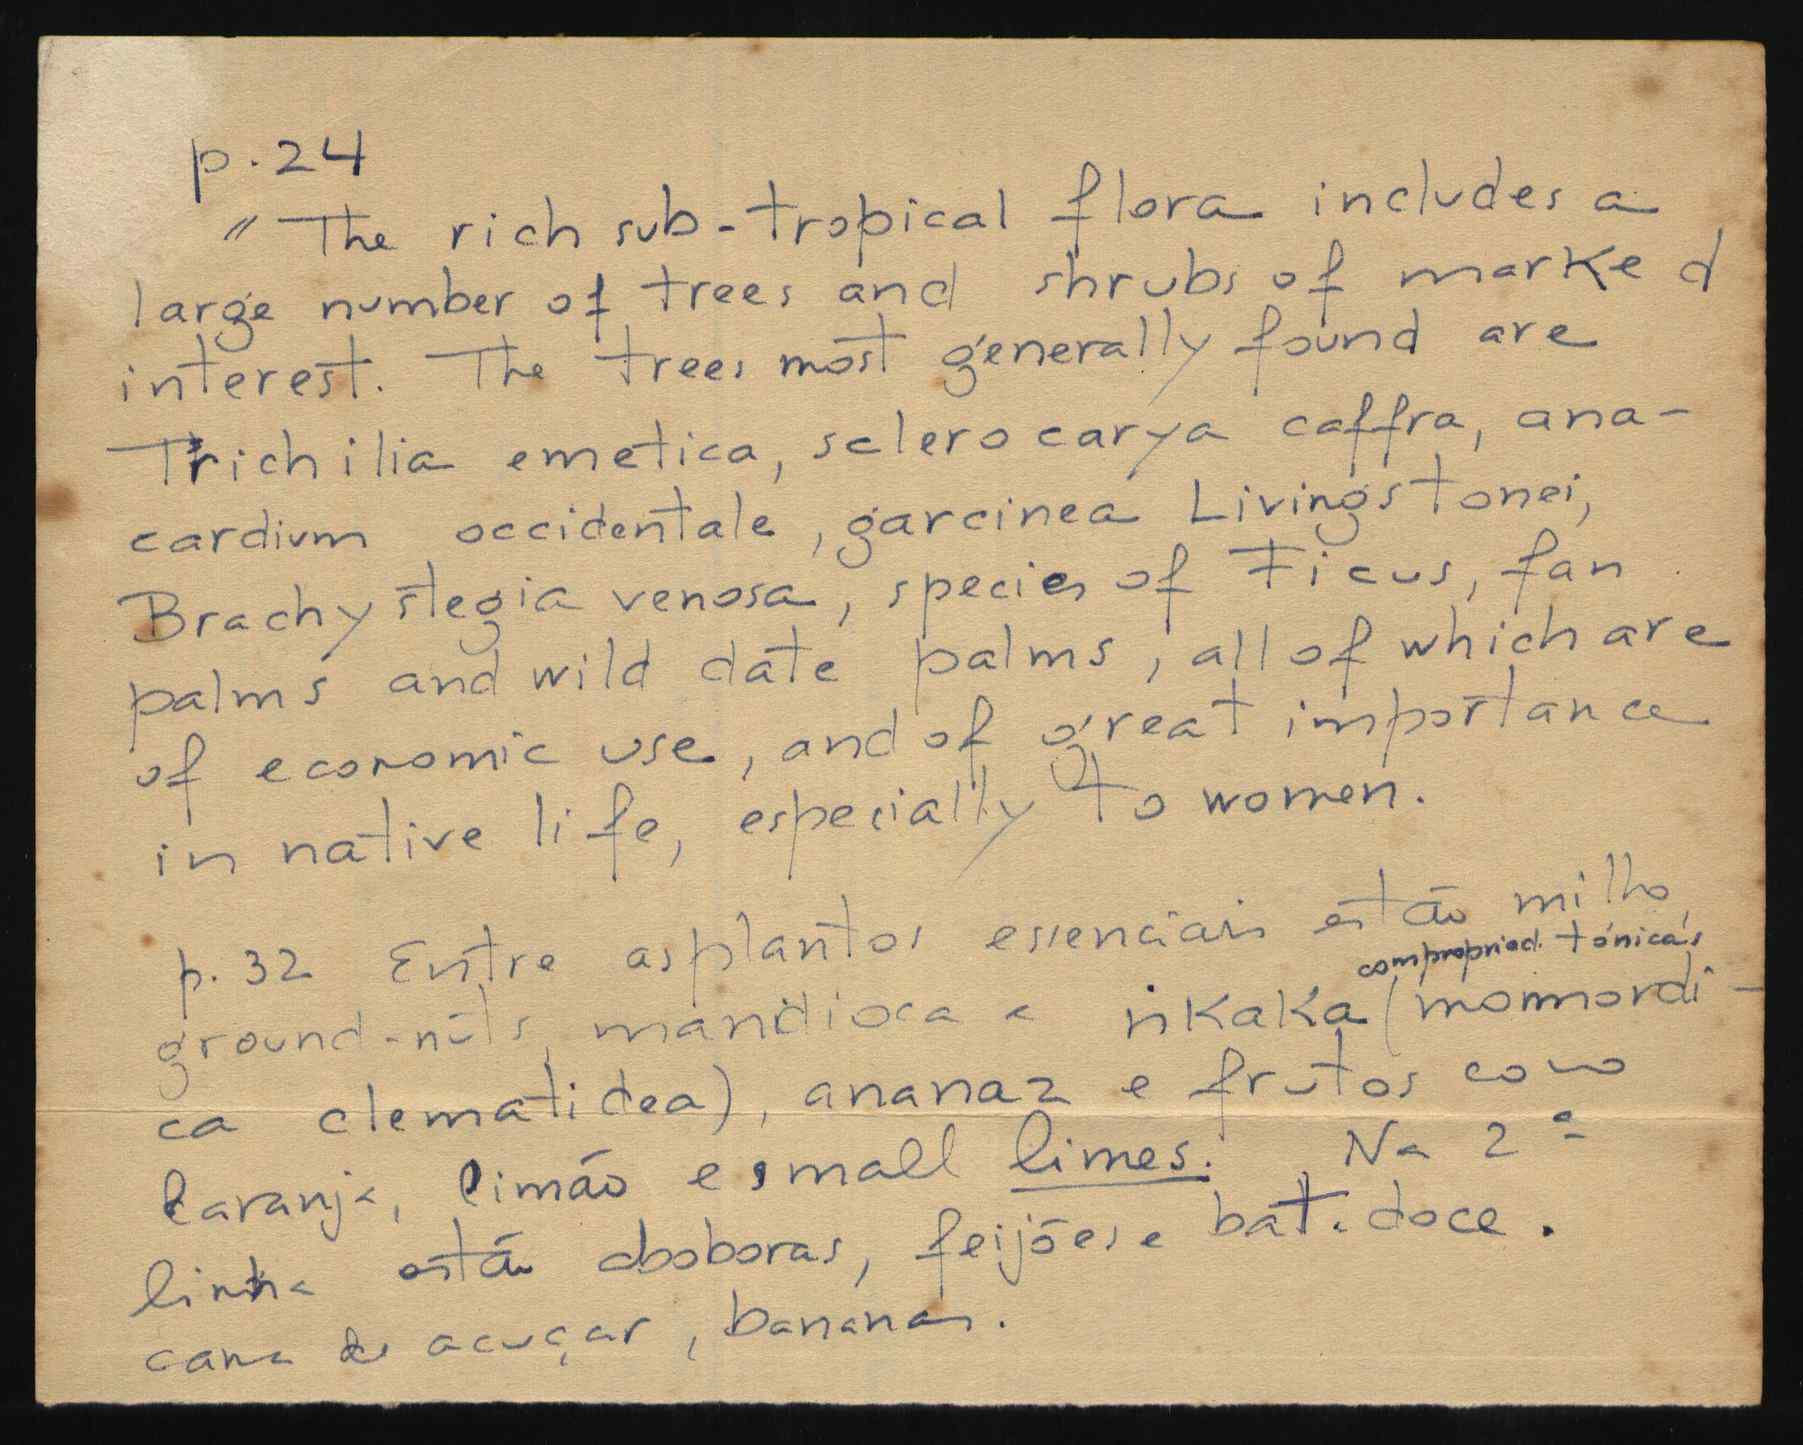 p. 24
" The rich sub-tropical flora includes a
large number of trees and shrubs of marked
interest. The trees most generally found are
Trichilia emetica, sclerocarya caffra, ana-
cardium occidentale, garcinea Livingstonei,
Brachystegia venosa, species of Ficus, fan
palms and wild date palms, all of which are
of economic use, and of great importance
in native life, especially to women.
p. 32 Entre as plantas essenciais estão milho,
com propriad. tónicas
ground-nuts, mandioca e nkaka (mommordi-
ca clematidea), ananaz e frutos como
laranja, limão e small limes. Na 2ª
linha estão aboboras, feijões e bat. doce.
cana de acuçar, bananas.